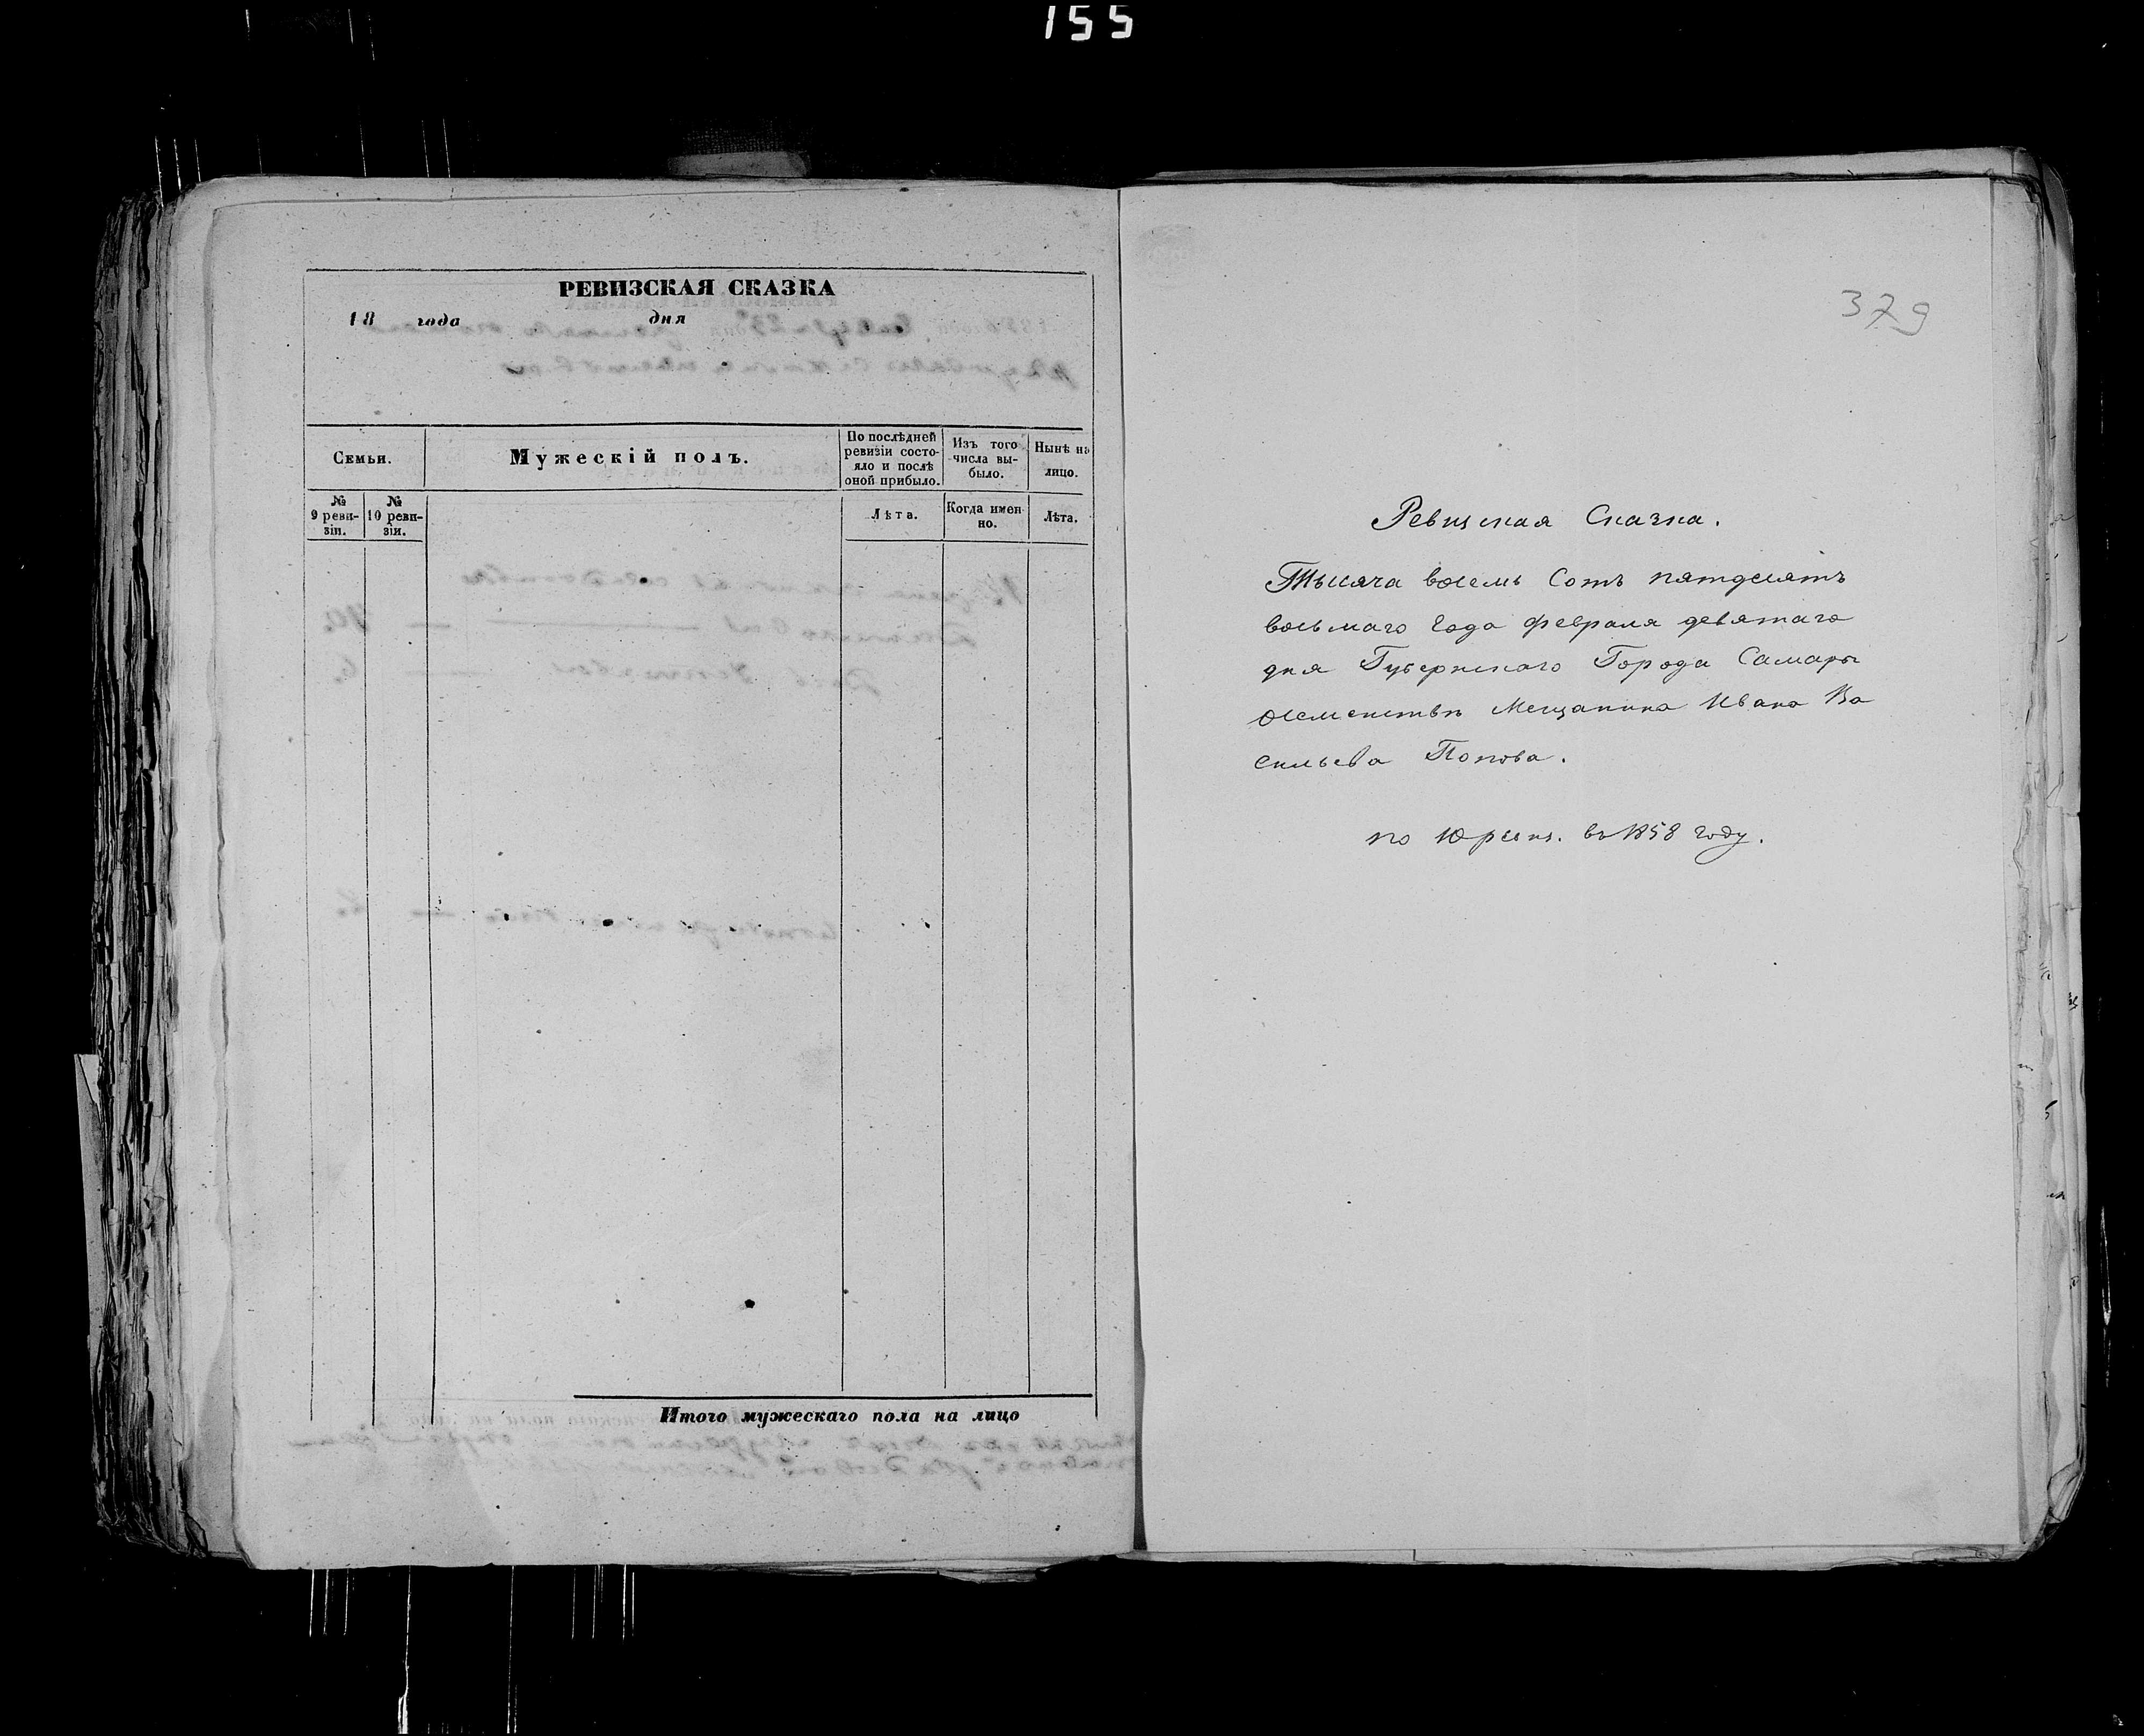 155
РЕВИЗСКАЯ СКАЗКА
18 года дня
Семьи.
Мужескій полъ.
По послѣдней ревизіи состо-
яло и послѣ оной прибыло.
Изъ того числа вы-
было.
Нынѣ на лицо.
№ 9 реви-
зіи.
№ 10 реви-
зіи.
Лѣта.
Когда имен
но.
Лѣта.
Итого мужескаго пола на лицо
379
Ревизская Сказка.
Тысяча восемь Сотъ пятдесятъ
восьмаго Года февраля девятаго
дня Губернскаго Города Самары
осемействѣ Мещанина Ивана Ва
сильева Попова.
по 10 ревиз. въ 1858 году.